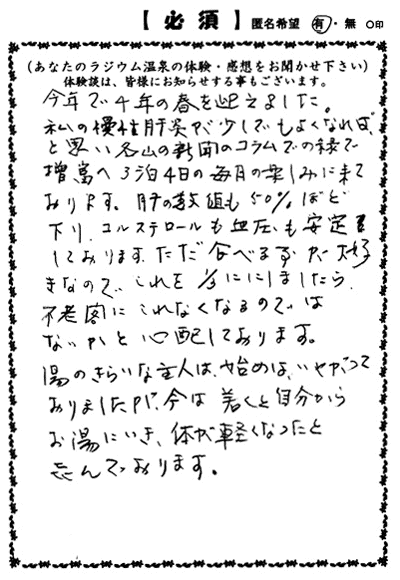 【必須】 匿名希望 有・無 ○印
(あなたのラジウム温泉の体験・感想をお聞かせ下さい)
体験談は、皆様にお知らせする事もございます。
今年で4年の春を迎えました。
私の慢性肝炎が少しでもよくなれば、
と思い名山の新聞のコラムでの縁で
増富へ3泊4日の毎月の楽しみに来て
おります。肝の数値も50%ほど
下り、コルステロールも血圧も安定
しております。ただ食べる事が大好
きなので、これを1/3ににしましたら、
不老閣にこれなくなるのでは
ないかと心配しております。
湯のきらいな主人は、始めは、いやがって
おりましたが、今は着くと自分から
お湯にいき、体が軽くなったと
忘んでおります。